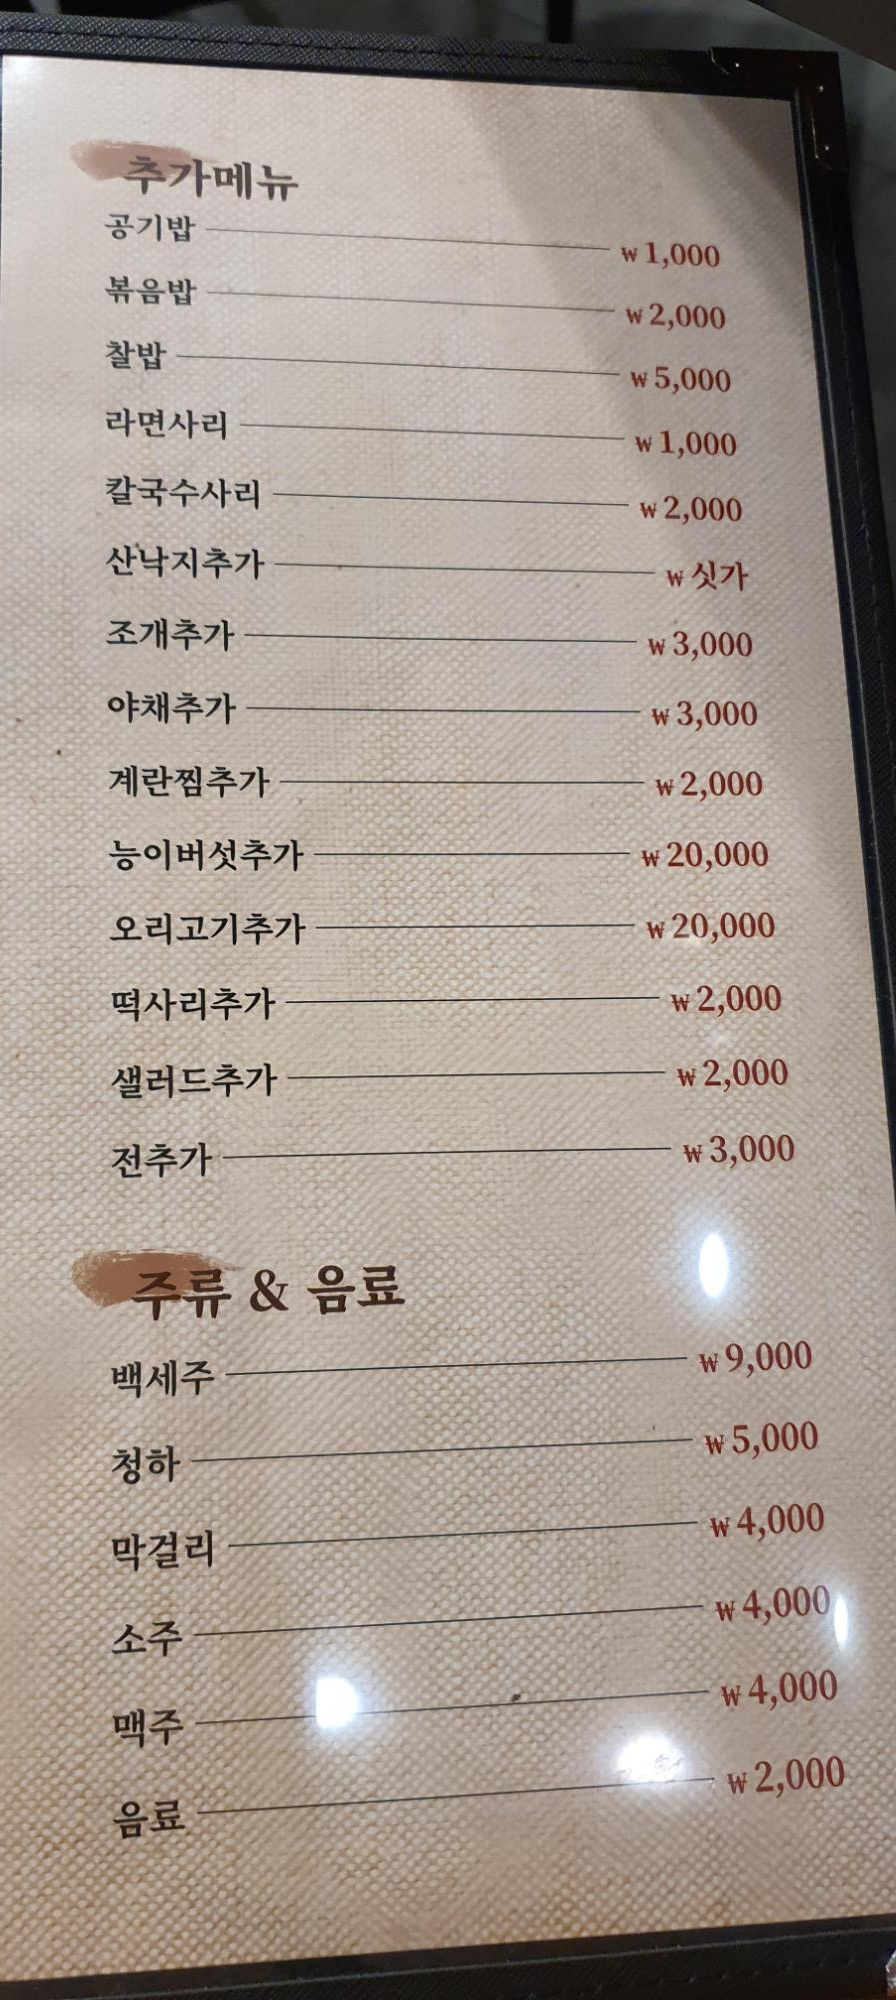 추가메뉴
공기밥 ₩1,000
볶음밥 ₩2,000
찰밥 ₩5,000
라면사리 ₩1,000
칼국수사리 ₩2,000
산낙지추가 ₩싯가
조개추가 ₩3,000
야채추가 ₩3,000
계란찜추가 ₩2,000
능이버섯추가 ₩20,000
오리고기추가 ₩20,000
떡사리추가 ₩2,000
샐러드추가 ₩2,000
전추가 ₩3,000
주류 & 음료
백세주 ₩9,000
청하 ₩5,000
막걸리 ₩4,000
소주 ₩4,000
맥주 ₩4,000
음료 ₩2,000